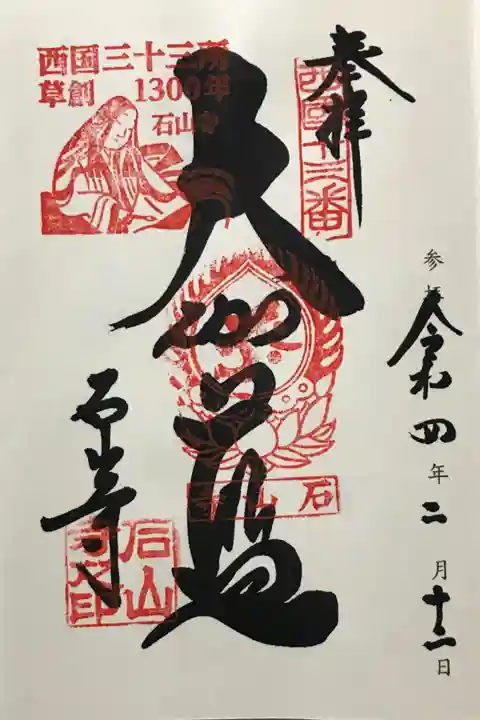 奉拝
西国十三番
参拝
令和四年二月十二日
大伽藍
石山寺
西国三十三所
草創 1300年
石山寺
石山寺
石山
寺之印